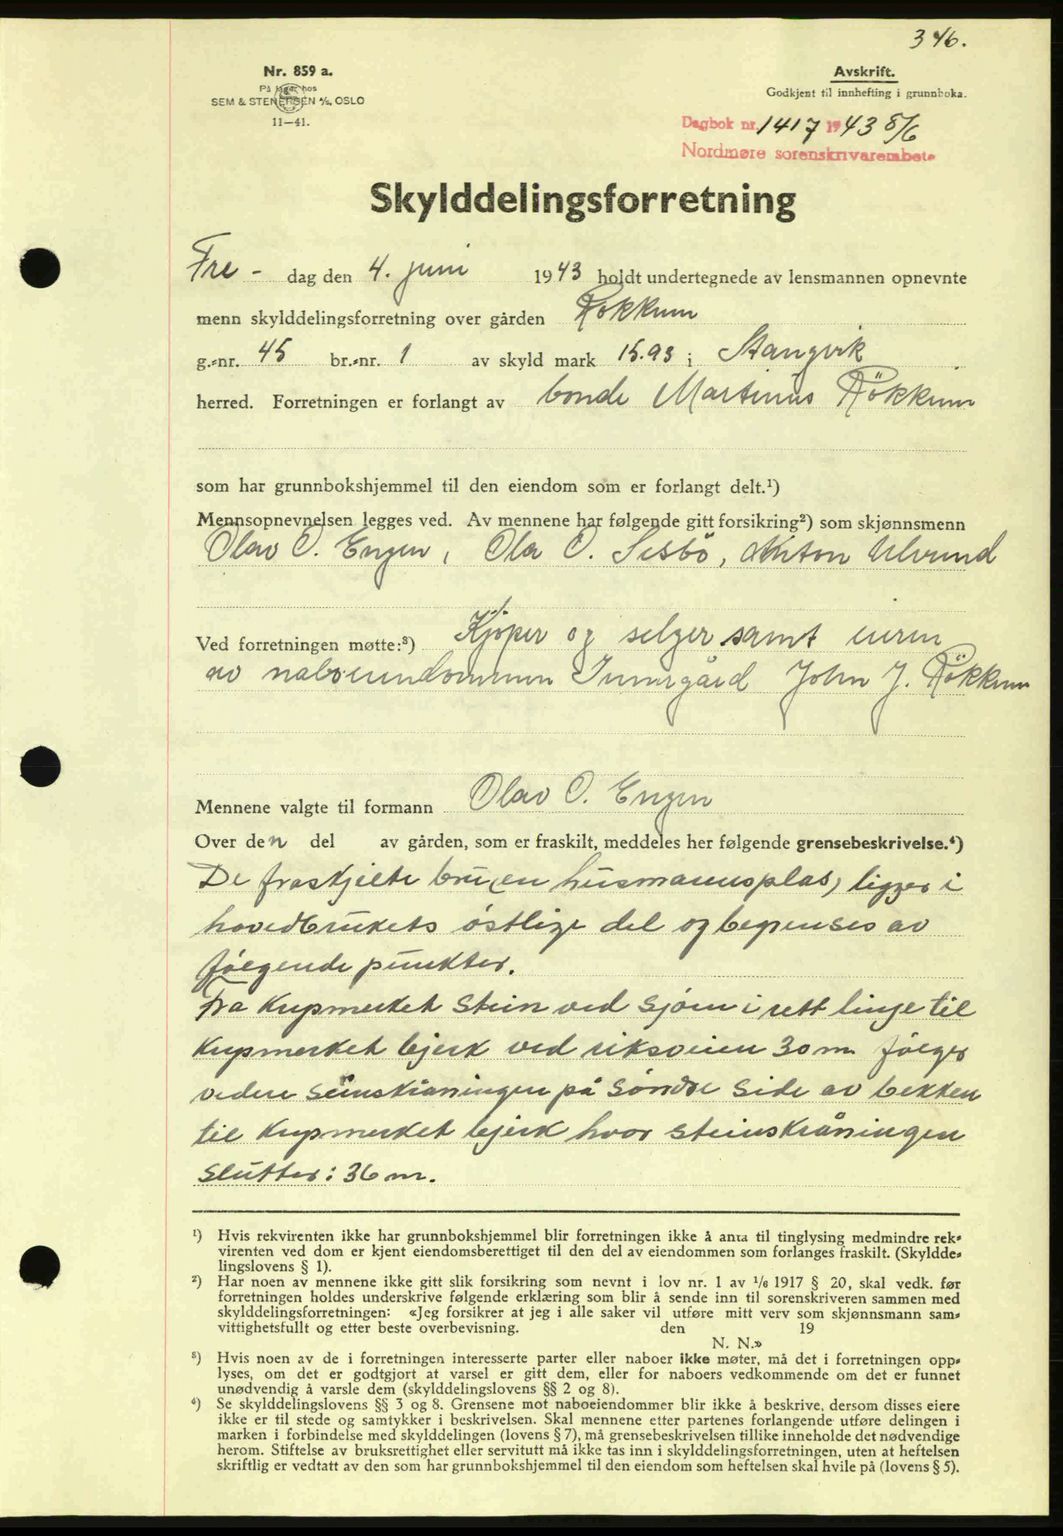 346.
Nr. 859 a.
På lager hos
SEM & STENERSEN A/S, OSLO
11—41.
Avskrift.
Godkjent til innhefting i grunnboka.
Dagbok nr. 1417 1943 8/6
Nordmøre sorenskrivarembete
Skylddelingsforretning
Fre - dag den 4. juni 1943 holdt undertegnede av lensmannen opnevnte
menn skylddelingsforretning over gården Røkkum
g.-nr. 45 br.-nr. 1 av skyld mark 15.93 i Stangvik
herred. Forretningen er forlangt av bonde Martinus Røkkum
som har grunnbokshjemmel til den eiendom som er forlangt delt.¹)
Mennsopnevnelsen legges ved. Av mennene har følgende gitt forsikring²) som skjønnsmenn
Olav O. Engen, Ola O. Sesbö, Anton Ulvund
Ved forretningen møtte:³) Kjøper og selger samt eieren
av naboeiendommen Innigård John J. Røkkum
Mennene valgte til formann Olav O. Engen
Over den del av gården, som er fraskilt, meddeles her følgende grensebeskrivelse.⁴)
De fraskjelte bru (en husmannsplas) ligger i
hovedbrukets östlige del og begrenses av
følgende punkter.
Fra krysmerket stein ved sjøen i rett linje til
krysmerket bjerk ved riksveien 30 m følger
videre steinskråningen på söndre side av bekken
til krysmerket bjerk hvor steinskråningen
slutter: 36 m.
¹) Hvis rekvirenten ikke har grunnbokshjemmel blir forretningen ikke å anta til tinglysing medmindre rek-
virenten ved dom er kjent eiendomsberettiget til den del av eiendommen som forlanges fraskilt. (Skyldde-
lingslovens § 1).
²) Har noen av mennene ikke gitt slik forsikring som nevnt i lov nr. 1 av 1/6 1917 § 20, skal vedk. før
forretningen holdes underskrive følgende erklæring som blir å sende inn til sorenskriveren sammen med
skylddelingsforretningen: «Jeg forsikrer at jeg i alle saker vil utføre mitt verv som skjønnsmann sam-
vittighetsfullt og etter beste overbevisning. den 19
N. N.»
³) Hvis noen av de i forretningen interesserte parter eller naboer ikke møter, må det i forretningen opp-
lyses, om det er godtgjort at varsel er gitt dem, eller for naboers vedkommende om det er funnet
unødvendig å varsle dem (skylddelingslovens §§ 2 og 8).
⁴) Se skylddelingslovens §§ 3 og 8. Grensene mot naboeiendommer blir ikke å beskrive, dersom disses eiere
ikke er til stede og samtykker i beskrivelsen. Skal mennene etter partenes forlangende utføre delingen i
marken i forbindelse med skylddelingen (lovens § 7), må grensebeskrivelsen tillike inneholde det nødvendige
herom. Stiftelse av bruksrettighet eller servitutt må ikke tas inn i skylddelingsforretningen, uten at heftelsen
skriftlig er vedtatt av den som har grunnbokshjemmel til den eiendom som heftelsen skal hvile på (lovens § 5).